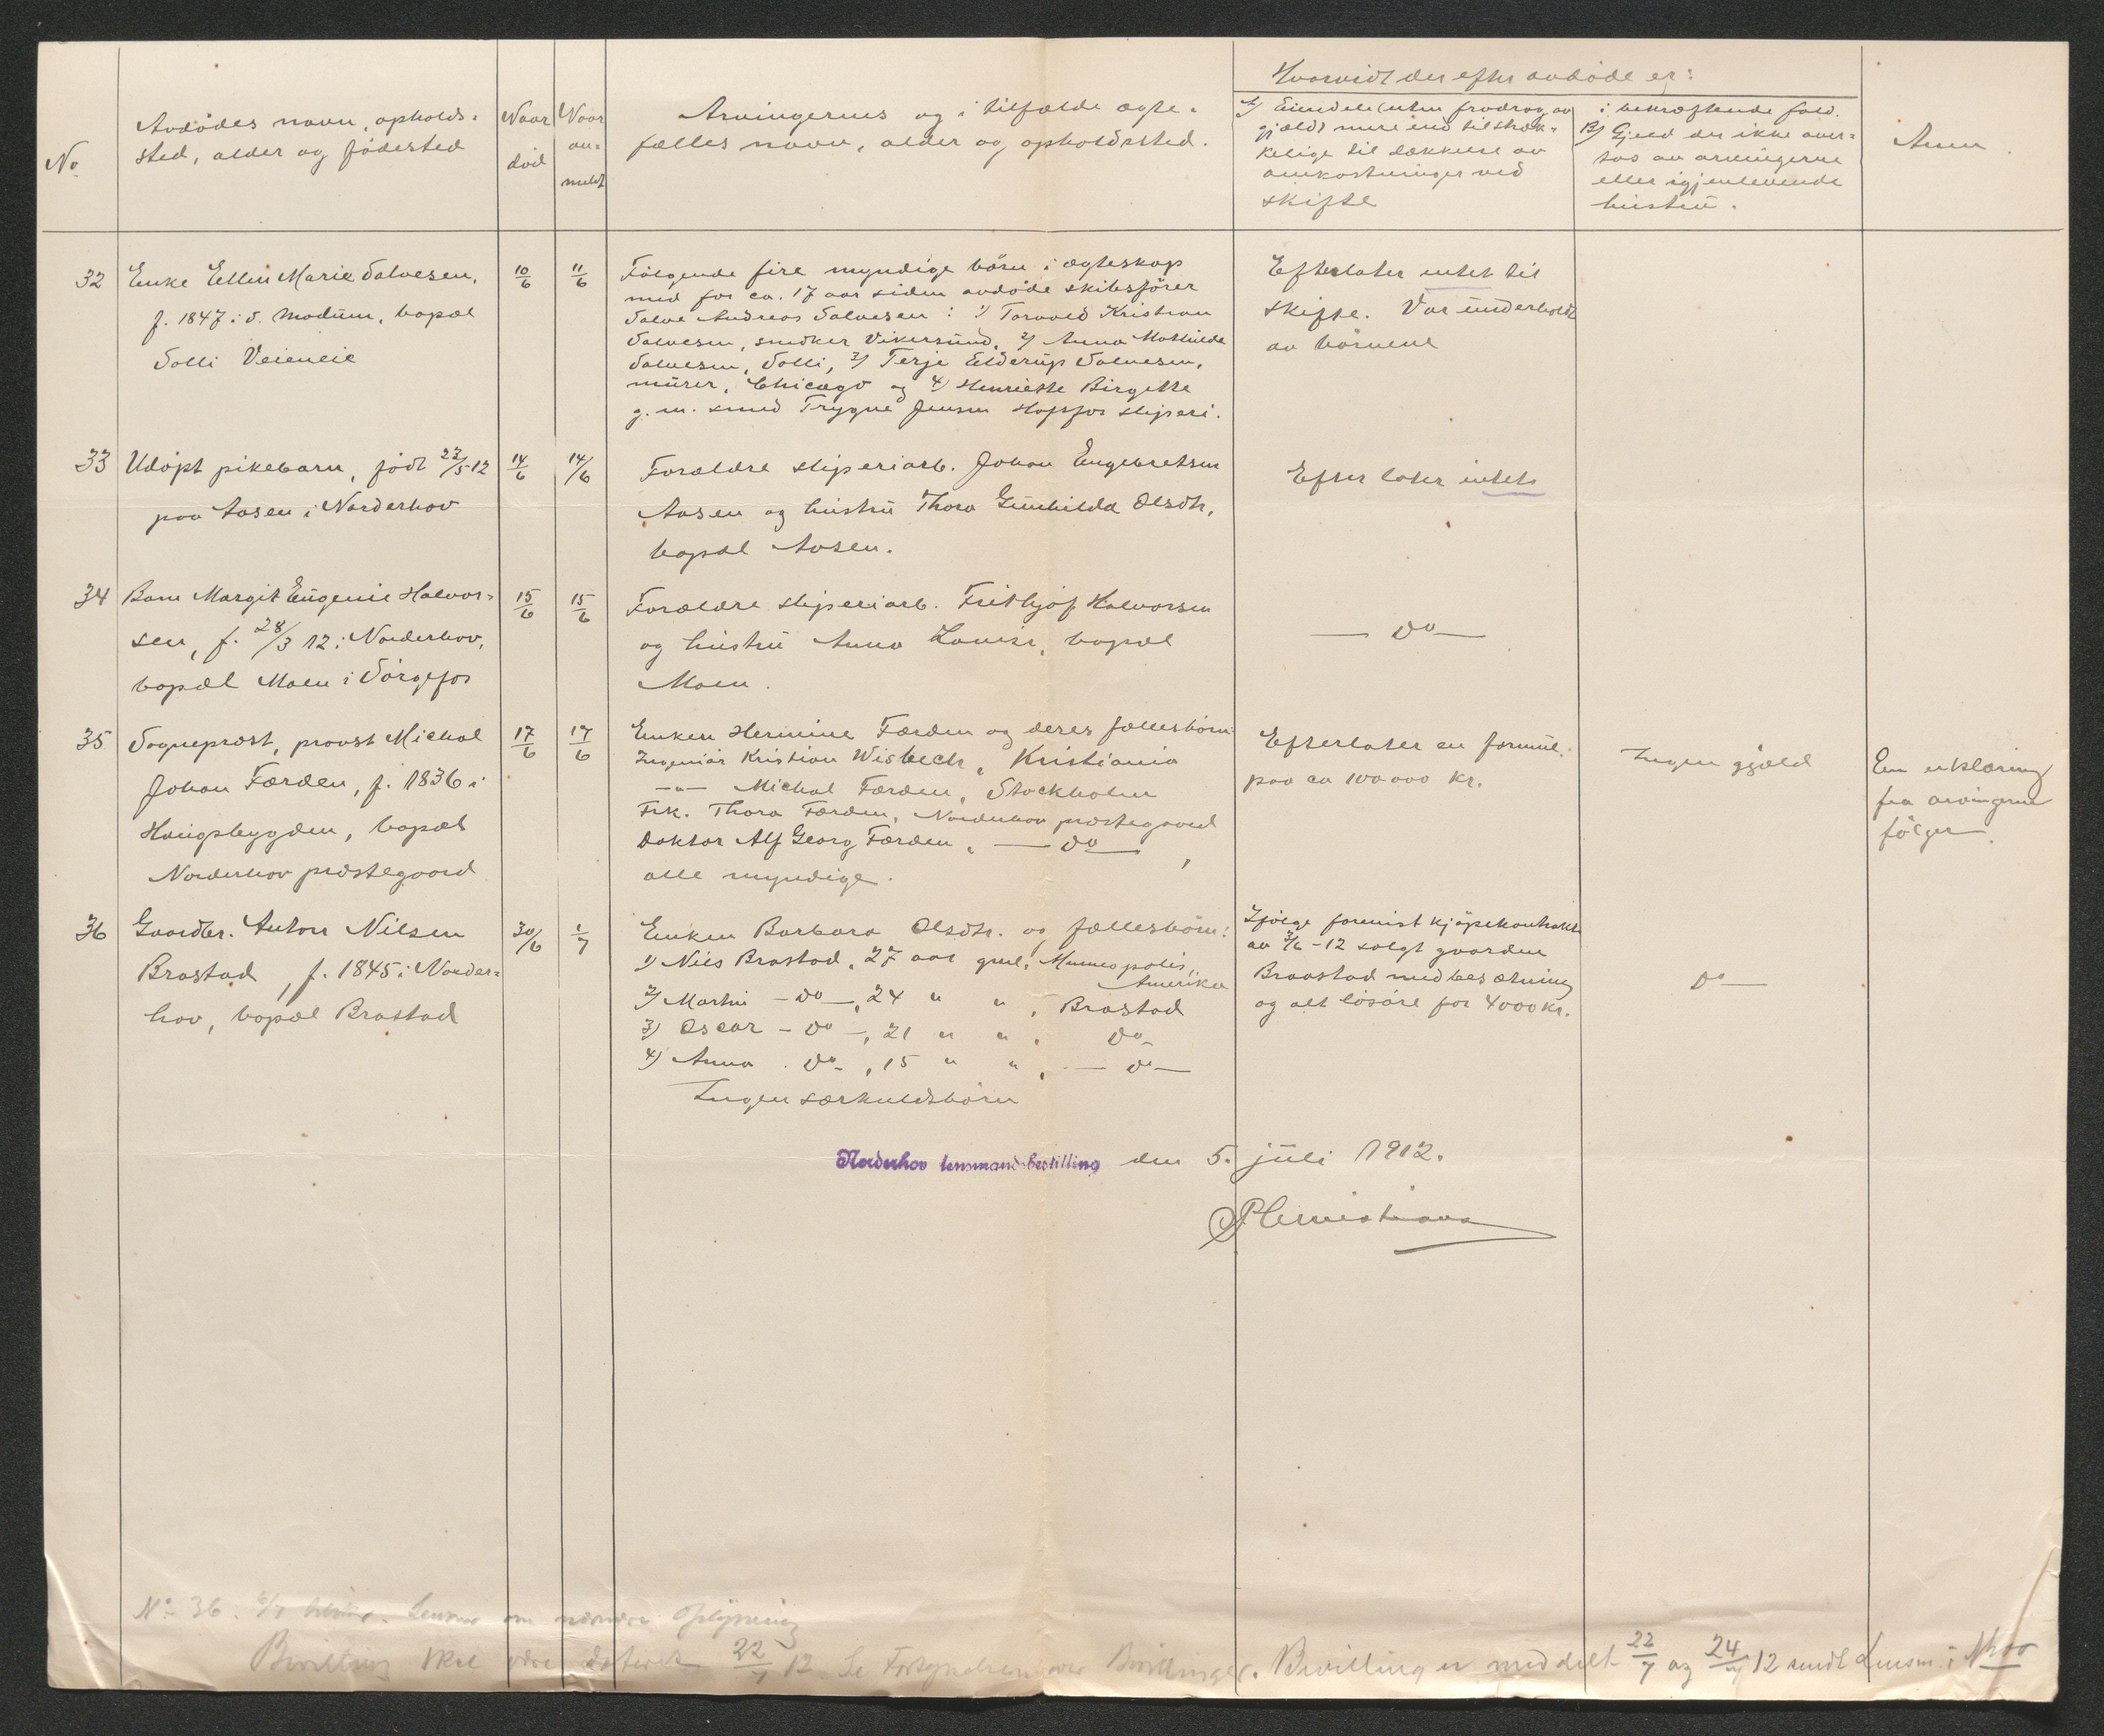 Hvorvidt der efter avdöde er:
No
Avdödes navn, opholds-
sted, alder og födested
Naar
död
Naar
an-
meldt
Arvingernes og i tilfælde ægte-
fælles navn, alder og opholdssted.
A) Eiendele (uten fradrag av
gjæld) mere end tilstræk-
kelige til dækkelse av
omkostninger ved
skifte
i bekræftende fald.
B) Gjeld der ikke over-
tas av arvingerne
eller igjenlevende
hustru.
Anm.
32
Enke Ellen Marie Salvesen,
f. 1847 i S. Modum, bopæl
Solli Veieneie
10/6
11/6
Fölgende fire myndige börn i ægteskap
med for ca. 17 aar siden avdöde skibsförer
Salve Andreas Salvesen: 1) Torvald Kristian
Salvesen, snedker Vikersund, 2) Anna Mathilde
Salvesen, Solli, 3) Terje Elderup Salvesen,
murer, Chicago og 4) Henriette Birgitte
g. m. smed Trygve Jensen Hofsfos sliperi.
Efterlater intet til
skifte. Var underholdt
av börnene
33
Udöpt pikebarn, födt 22/5 12
paa Aasen i Norderhov
14/6
14/6
Forældre sliperiarb. Johan Engebretsen
Aasen og hustru Thora Gunhilda Olsdtr.
bopæl Aasen.
Efterlater intet
34
Barn Margit Eugenie Halvor-
sen, f. 28/3 12 i Norderhov,
bopæl Moen i Sörgefos
15/6
15/6
Forældre sliperiarb. Frithjof Halvorsen
og hustru Anna Lovise, bopæl
Moen.
— do —
35
Sogneprest, provst Michal
Johan Færden, f. 1836 i
Haugsbygden, bopæl
Norderhov prestegaard
17/6
17/6
Enken Hermine Færden og deres fællesbörn:
Ingeniör Kristian Wisbech, Kristiania
—"— Michal Færden, Stockholm
Frk. Thora Færden, Norderhov prestegaard
Doktor Alf Georg Færden, — do —,
alle myndige.
Efterlater en formue
paa ca 100 000 kr.
Ingen gjæld
En erklæring
fra arvingerne
fölger.
36
Gaardbr. Anton Nilsen
Brastad, f. 1845 i Norder-
hov, bopæl Brastad
30/6
1/7
Enken Barbara Olsdtr. og fællesbörn:
1) Nils Brastad, 27 aar gml, Minneapolis,
Amerika
2) Martin — do —, 24 " ", Brastad
3) Oscar — do —, 21 " ", do
4) Anna — do —, 15 " ", — do —
Ingen særkuldsbörn
Ifölge forevist kjöpekontrakt
av 3/6 -12 solgt gaarden
Braastad med besætning
og alt lösöre for 4000 kr.
do —
Norderhov lensmandsbestilling den 5. juli 1912.
No 36. Lensmand om nærmere oplysning
Bevilling skal være dateret 22/7 12. Se Fortegnelsen over Bevillinger. Bevilling er meddelt 22/7 og 24/7 12 sendt Lensm. i Nhov